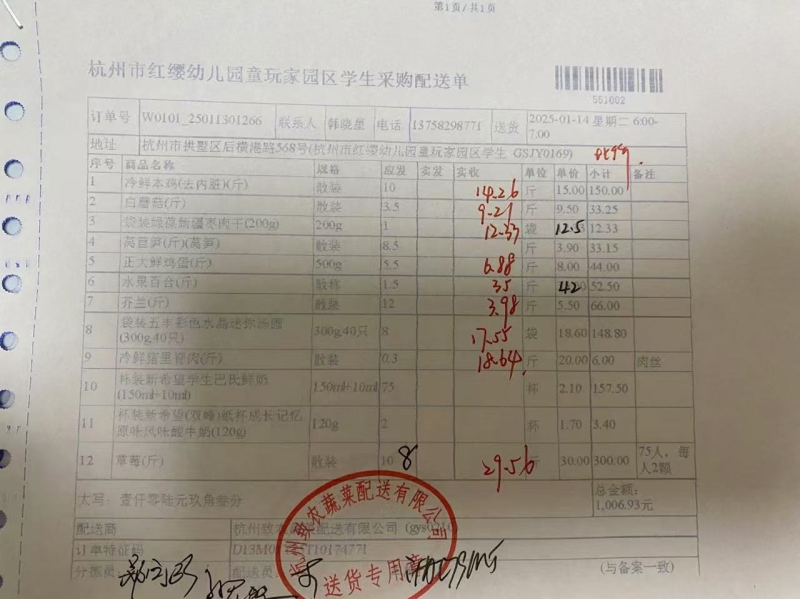 第1页/共1页
杭州市红缨幼儿园童玩家园区学生采购配送单
551002
订单号 W0101_25011301266 联系人 韩晓星 电话 13758298771 送货 2025-01-14 星期二 6:00-7:00
地址 杭州市拱墅区后横港路568号(杭州市红缨幼儿园童玩家园区学生 GSJY0169)
序号 商品名称 规格 应发 实发 实收 单位 单价 小计 备注
1 冷鲜本鸡(去内脏)(斤) 散装 10 14.26 斤 15.00 150.00
2 白蘑菇(斤) 散装 3.5 9.21 斤 9.50 33.25
3 袋装 新疆枣肉干(200g) 200g 1 12.33 袋 12.5 12.33
4 莴苣笋(斤)(莴笋) 散装 8.5 斤 3.90 33.15
5 正大鲜鸡蛋(斤) 500g 5.5 6.88 斤 8.00 44.00
6 水果百合(斤) 散称 1.5 35 斤 42 52.50
7 芥兰(斤) 散装 12 3.98 斤 5.50 66.00
8 袋装五丰彩色水晶迷你汤圆(300g,40只) 300g,40只 8 17.55 袋 18.60 148.80
9 冷鲜猪里脊肉(斤) 散装 0.3 18.64 斤 20.00 6.00 肉丝
10 杯装新希望学生巴氏鲜奶(150ml+10ml) 150ml+10ml 75 杯 2.10 157.50
11 杯装新希望(双峰)纸杯成长记忆原味风味酸牛奶(120g) 120g 2 杯 1.70 3.40
12 草莓(斤) 散装 10 8 29.56 斤 30.00 300.00 75人，每人2颗
大写：壹仟零陆元玖角叁分 总金额：1,006.93元
配送商 杭州致农蔬菜配送有限公司
订单特征码
分拣员: 配送员: (与备案一致)
杭州致农蔬菜配送有限公司
送货专用章